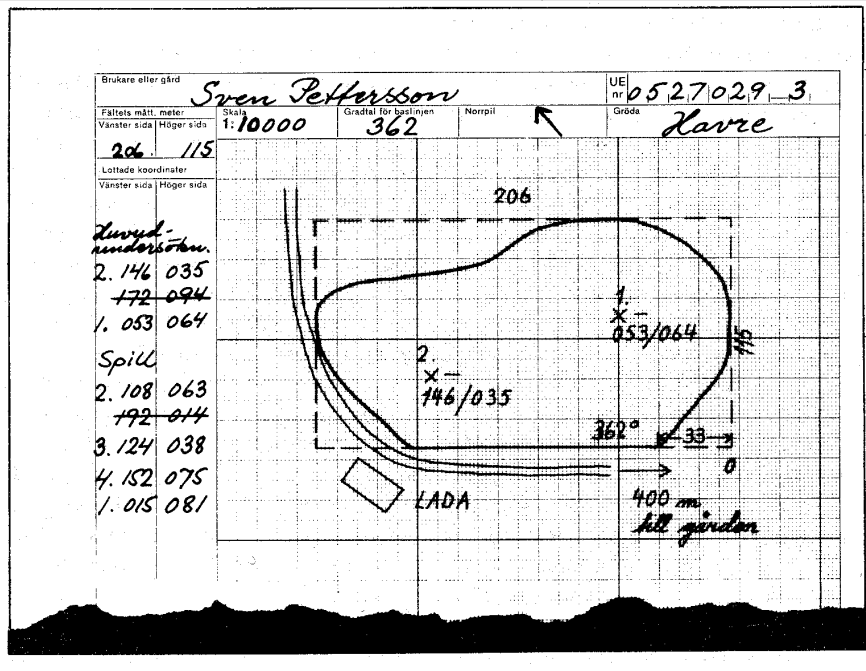 Brukare eller gård
Sven Pettersson
UE nr 0 5 2 7 0 2 9 _ 3
Fältets mått, meter
Vänster sida Höger sida
206. 115
Skala
1:10000
Gradtal för baslinjen
362
Norrpil
Gröda
Havre
Lottade koordinater
Vänster sida Höger sida
Huvud-
undersökn.
2. 146 035
172 094
1. 053 064
Spill
2. 108 063
192 014
3. 124 038
4. 152 075
1. 015 081
206
1.
X –
053/064
115
2.
X –
146/035
362° 33
0
LADA
400 m
till gården